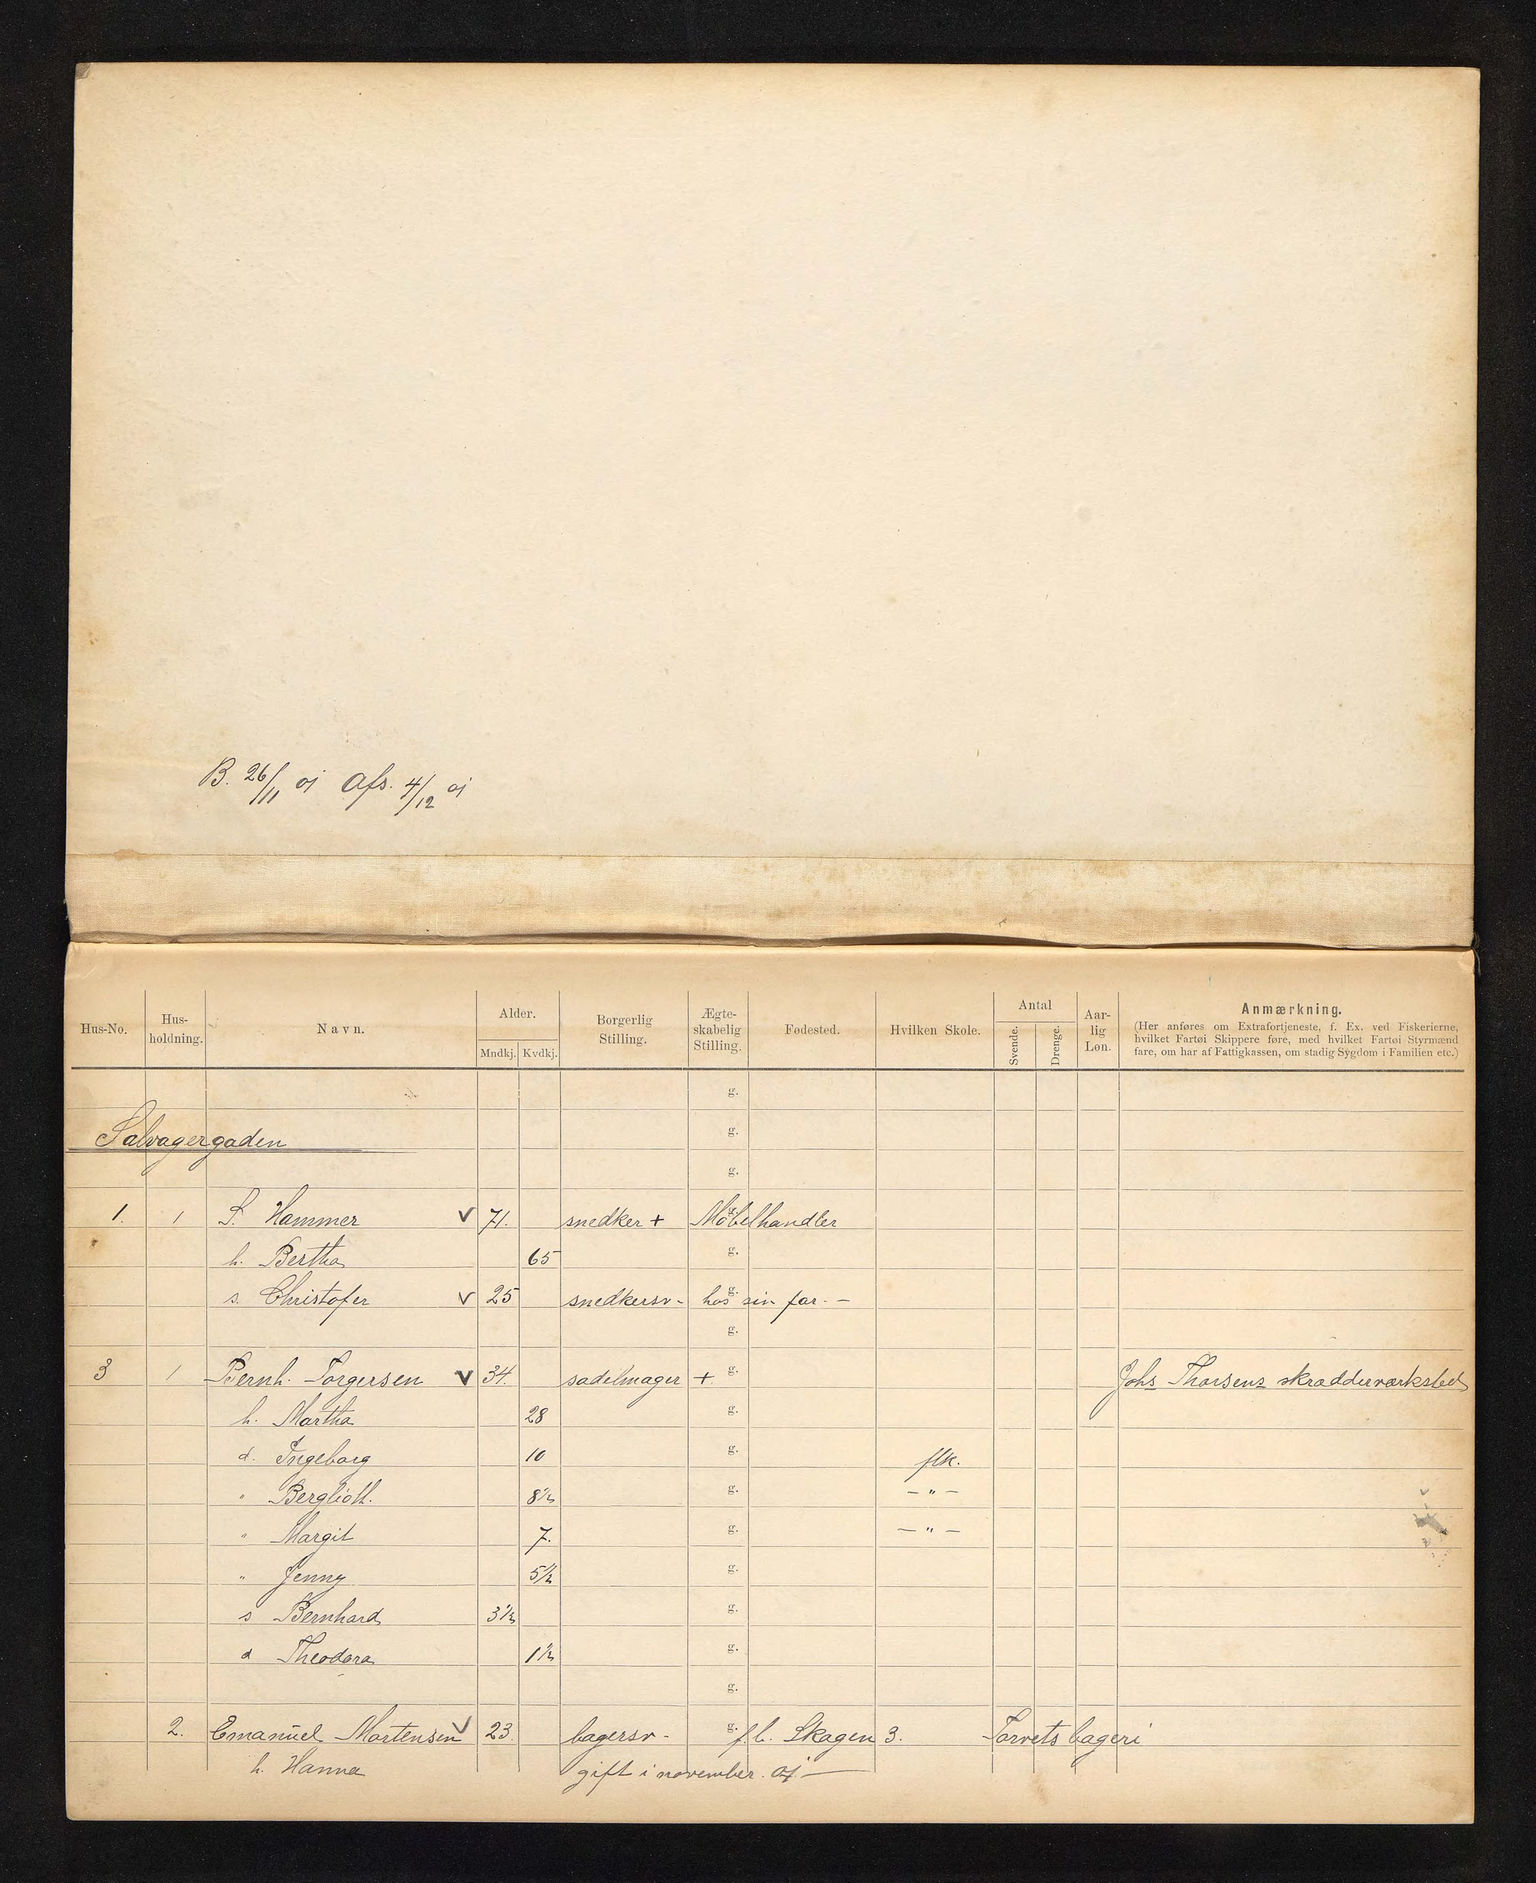 B. 26/11 01 Afs. 4/12 01
Hus-No. Hus-holdning. Navn. Alder. Mndkj. Kvdkj. Borgerlig Stilling. Ægte-skabelig Stilling. Fødested. Hvilken Skole. Antal Svende. Drenge. Aar-lig Løn. Anmærkning.
(Her anføres om Extrafortjeneste, f. Ex. ved Fiskerierne,
hvilket Fartøi Skippere føre, med hvilket Fartøi Styrmænd
fare, om har af Fattigkassen, om stadig Sygdom i Familien etc.)
g.
Salvagergaden g.
g.
1. 1 S. Hammer v 71. snedker + Møbelhandler
h. Bertha 65 g.
s. Christofer v 25 snedkersv- g. hos sin far. —
g.
3 1 Bernh. Torgersen v 34. sadelmager + g. Johs Thorsens skrædderværksted
h. Martha 28 g.
d. Ingeborg 10 g. flk.
" Bergliott. 8½ g. — " —
" Margit 7. g. — " —
" Jenny 5½ g.
s Bernhard 3½ g.
d Theodora 1½ g.
g.
2. Emanuel Mortensen v 23. bagersv- g. f.b. Skagen 3. Torvets bageri
h. Hanna gift i november. 01 —